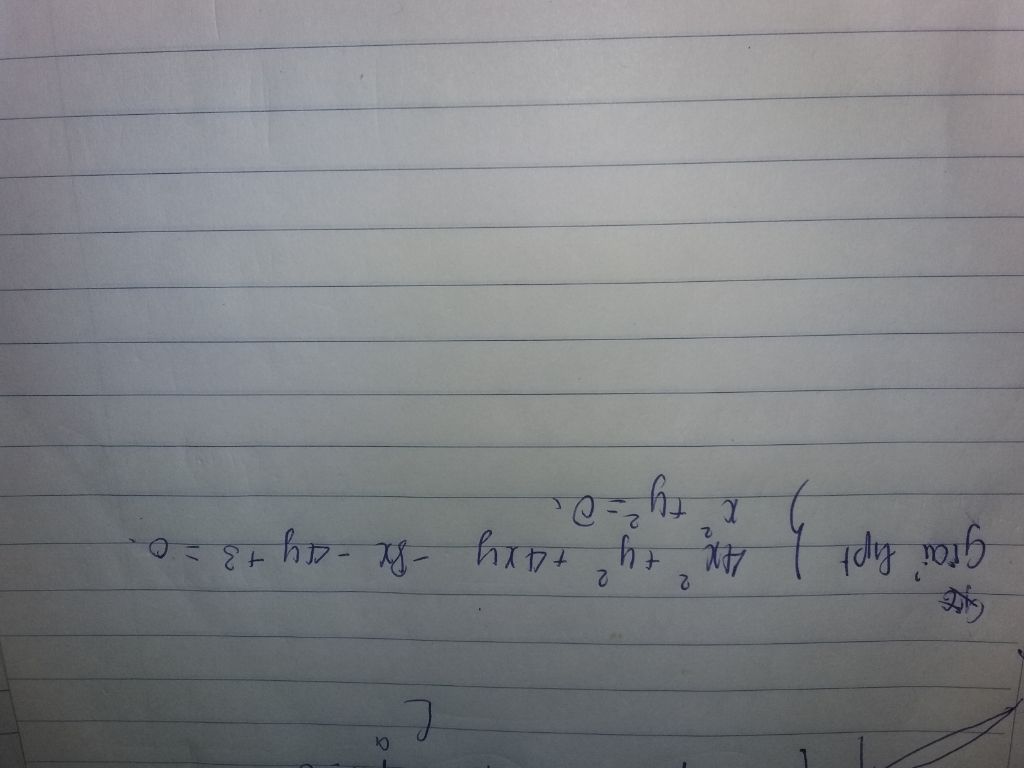 Giải hpt { 4x² + y² + 4xy - 8x - 4y + 3 = 0.
x² + y² = 0.